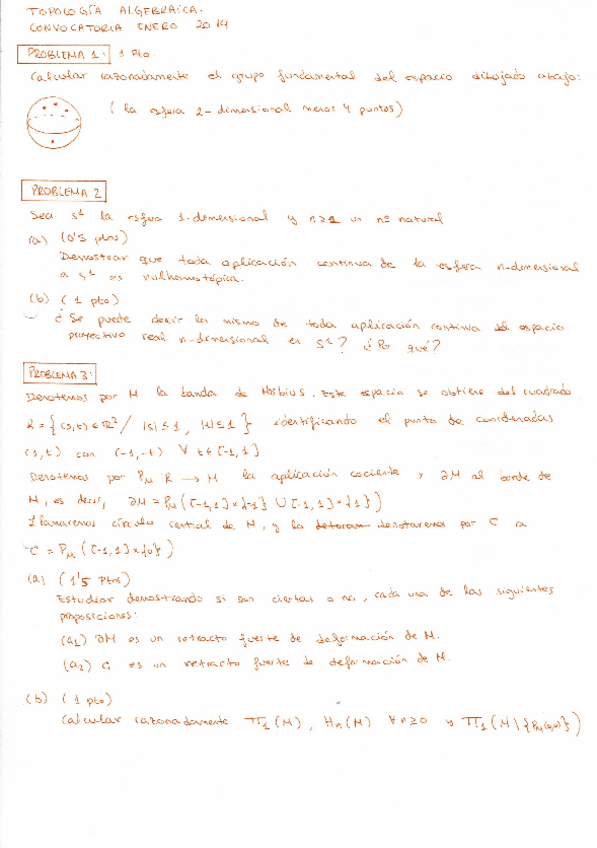 TOPOLOGÍA ALGEBRAICA.
CONVOCATORIA ENERO 2014
PROBLEMA 1: 1 Pto.
Calcular razonadamente el grupo fundamental del espacio dibujado abajo:
( la esfera 2-dimensional menos 4 puntos)
PROBLEMA 2
Sea S¹ la esfera 1-dimensional y n≥1 un nº natural
(a) (0'5 ptos)
Demostrar que toda aplicación continua de la esfera n-dimensional
a S¹ es nulhomotópica.
(b) ( 1 pto)
¿ Se puede decir lo mismo de toda aplicación continua del espacio
proyectivo real n-dimensional en S¹? ¿Por qué?
PROBLEMA 3:
Denotemos por M la banda de Möbius. Este espacio se obtiene del cuadrado
R = { (s,t) ∈ ℝ² / |s| ≤ 1, |t| ≤ 1 } identificando el punto de coordenadas
(1,t) con (-1,-t) ∀ t∈[-1,1]
Denotemos por P_M: R → M la aplicación cociente y ∂M al borde de
M, es decir, ∂M = P_M ([-1,1]×{-1} ∪ [-1,1]×{1})
Llamaremos círculo central de M, y lo denotaremos por C a
C = P_M ([-1,1]×{0})
(a) ( 1'5 Ptos)
Estudiar demostrando si son ciertas o no, cada una de las siguientes
proposiciones:
(a1) ∂M es un retracto fuerte de deformación de M.
(a2) C es un retracto fuerte de deformación de M.
(b) ( 1 pto)
Calcular razonadamente Π₁(M), Hn(M) ∀n≥0 y Π₁(M\{P_M(0,0)})